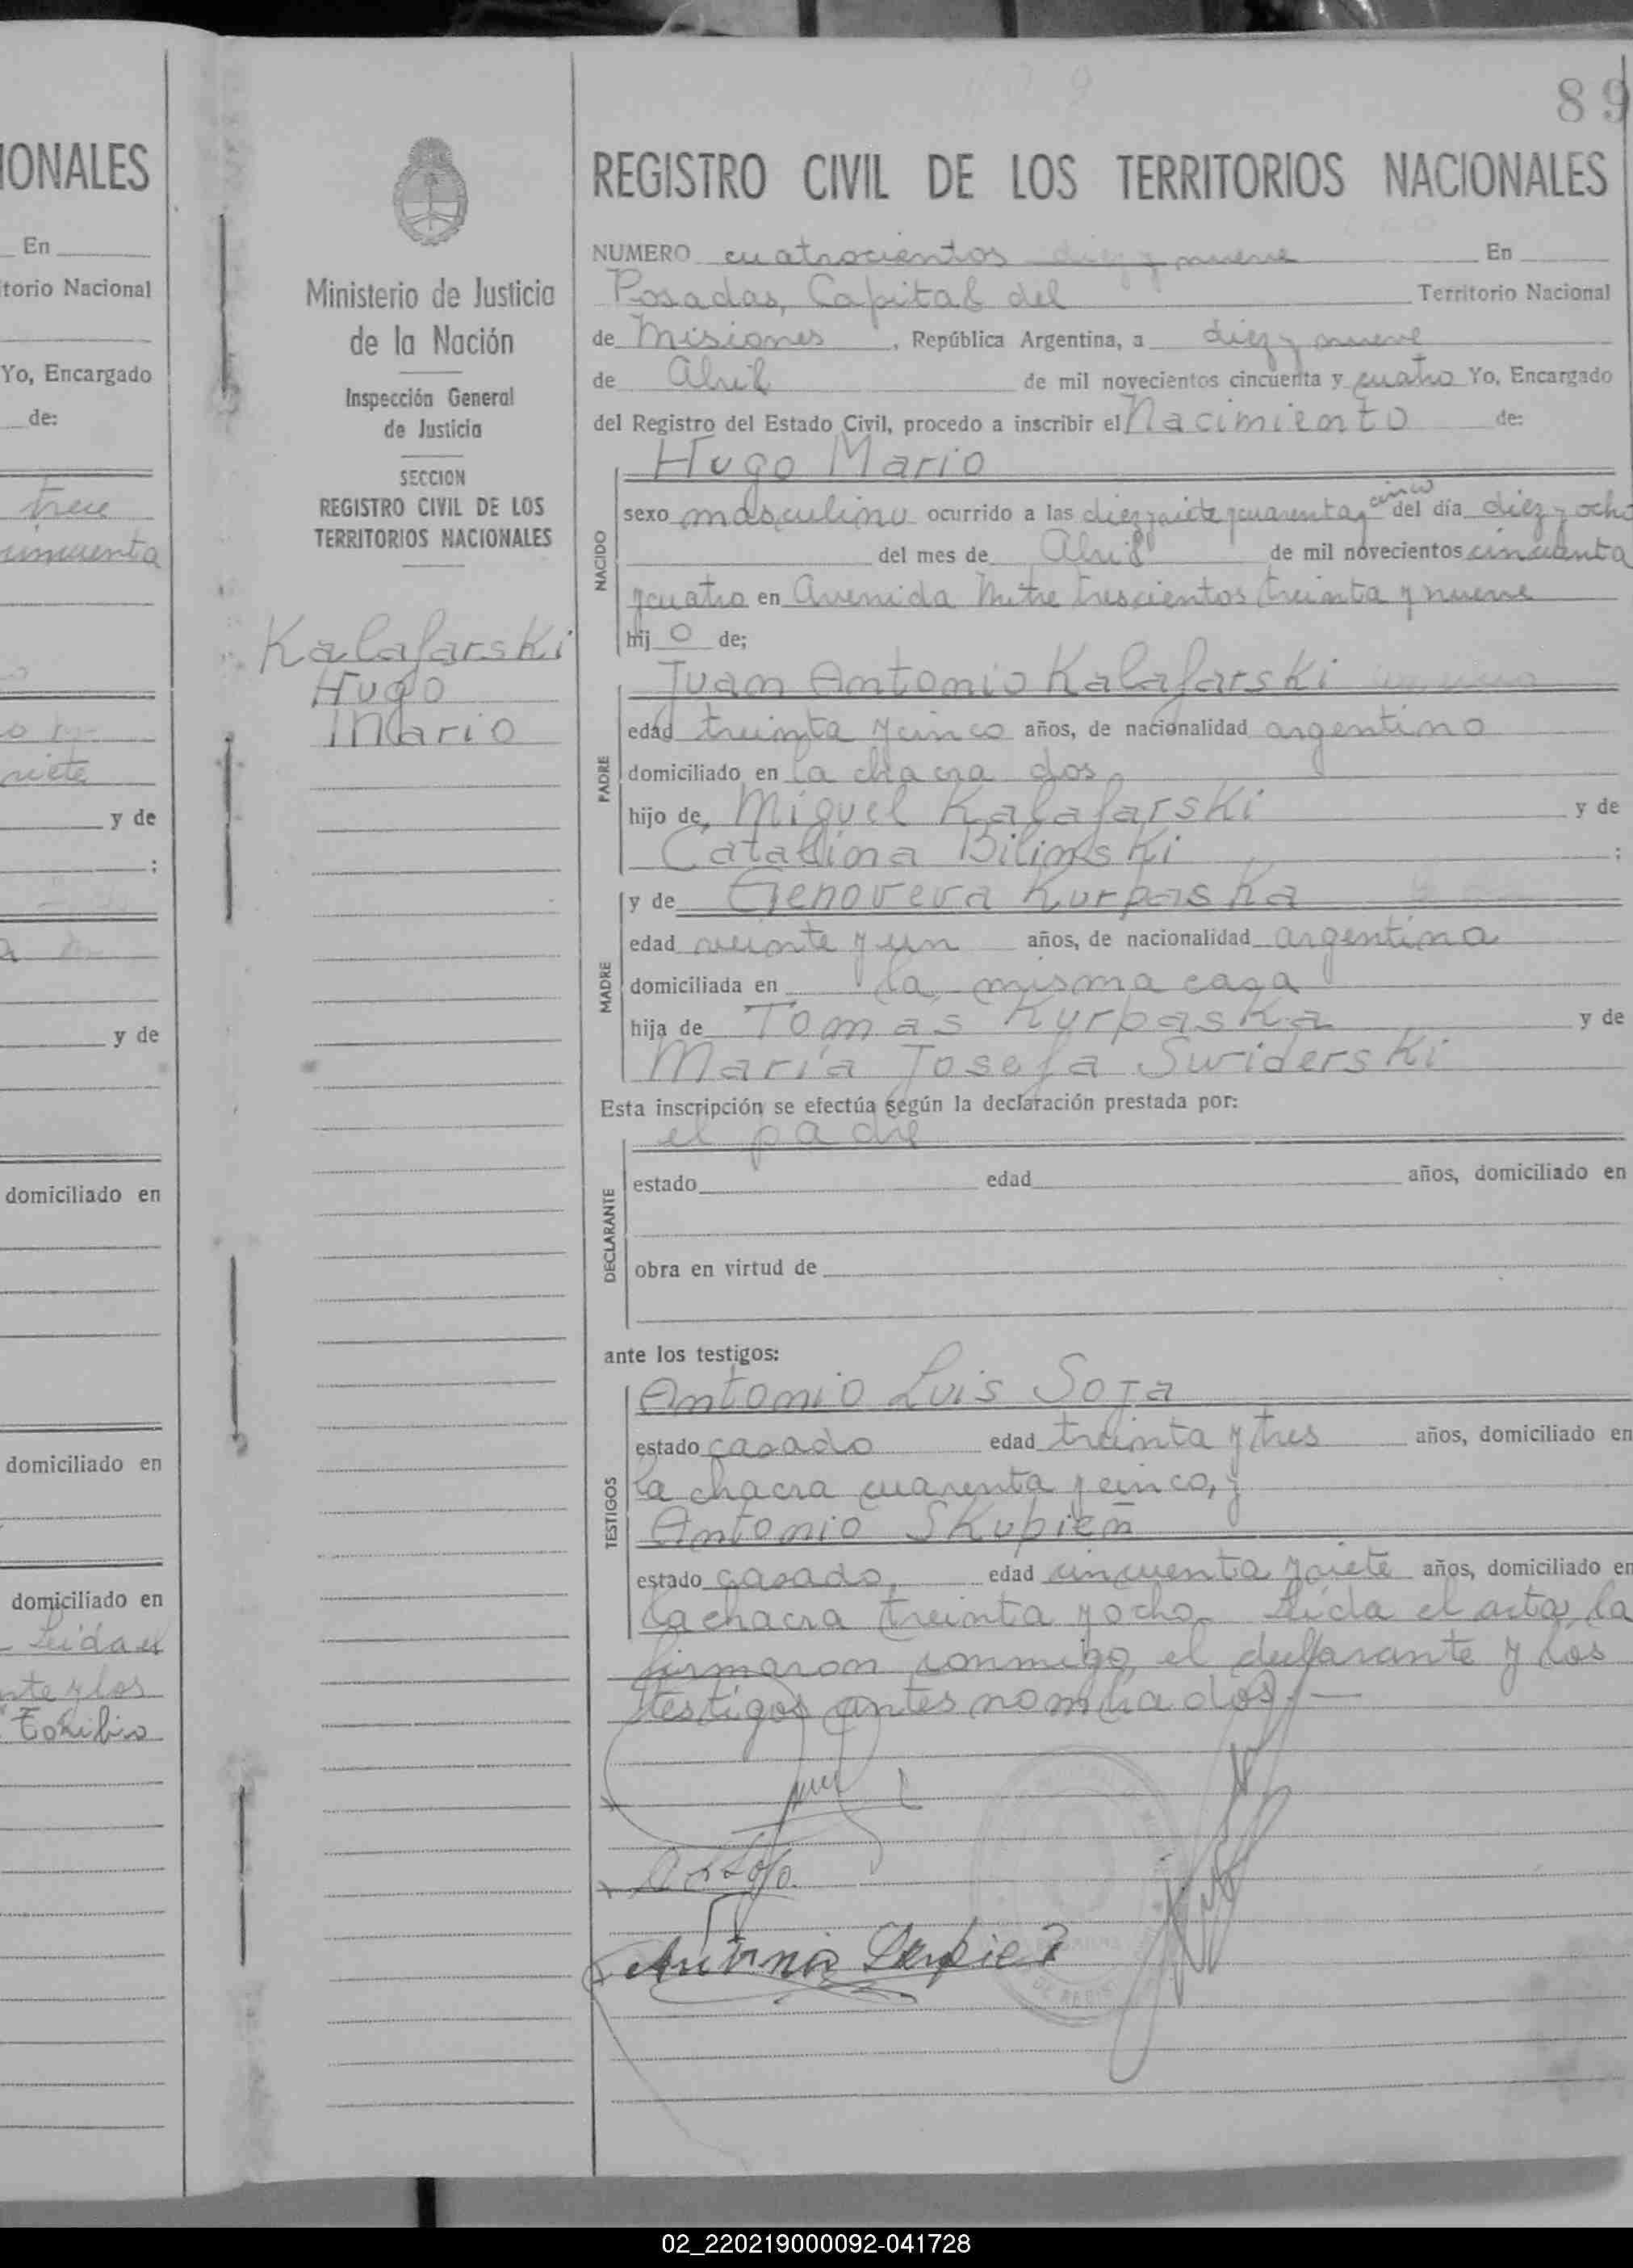 IONALES
En
itorio Nacional
Yo, Encargado
de:
trece
cincuenta
siete
y de
;
y de
domiciliado en
domiciliado en
domiciliado en
Leida el
nte y los
Toribio
Ministerio de Justicia
de la Nación
Inspección General
de Justicia
SECCION
REGISTRO CIVIL DE LOS
TERRITORIOS NACIONALES
Kalafarski
Hugo
Mario
89
REGISTRO CIVIL DE LOS TERRITORIOS NACIONALES
NUMERO cuatrocientos diez y nueve En
Posadas, Capital del Territorio Nacional
de Misiones, República Argentina, a diez y nueve
de Abril de mil novecientos cincuenta y cuatro Yo, Encargado
del Registro del Estado Civil, procedo a inscribir el Nacimiento de:
Hugo Mario
NACIDO
sexo masculino ocurrido a las diez y siete y cuarenta y cinco del día diez y ocho
del mes de Abril de mil novecientos cincuenta
y cuatro en Avenida Mitre trescientos treinta y nueve
hij o de;
Juan Antonio Kalafarski
PADRE
edad treinta y cinco años, de nacionalidad argentino
domiciliado en la chacra dos,
hijo de, Miguel Kalafarski y de
Catalina Bilinski ;
MADRE
y de Genoveva Kurpaska
edad veinte y un años, de nacionalidad argentina
domiciliada en la misma casa
hija de Tomás Kurpaska y de
María Josefa Swiderski
Esta inscripción se efectúa según la declaración prestada por:
el padre
DECLARANTE
estado edad años, domiciliado en
obra en virtud de
ante los testigos:
TESTIGOS
Antonio Luis Soja
estado casado edad treinta y tres años, domiciliado en
la chacra cuarenta y cinco, y
Antonio Skupień
estado casado, edad cincuenta y siete años, domiciliado en
la chacra treinta y ocho. Leida el acta, la
firmaron conmigo, el declarante y los
testigos antes nombrados.—
02_220219000092-041728